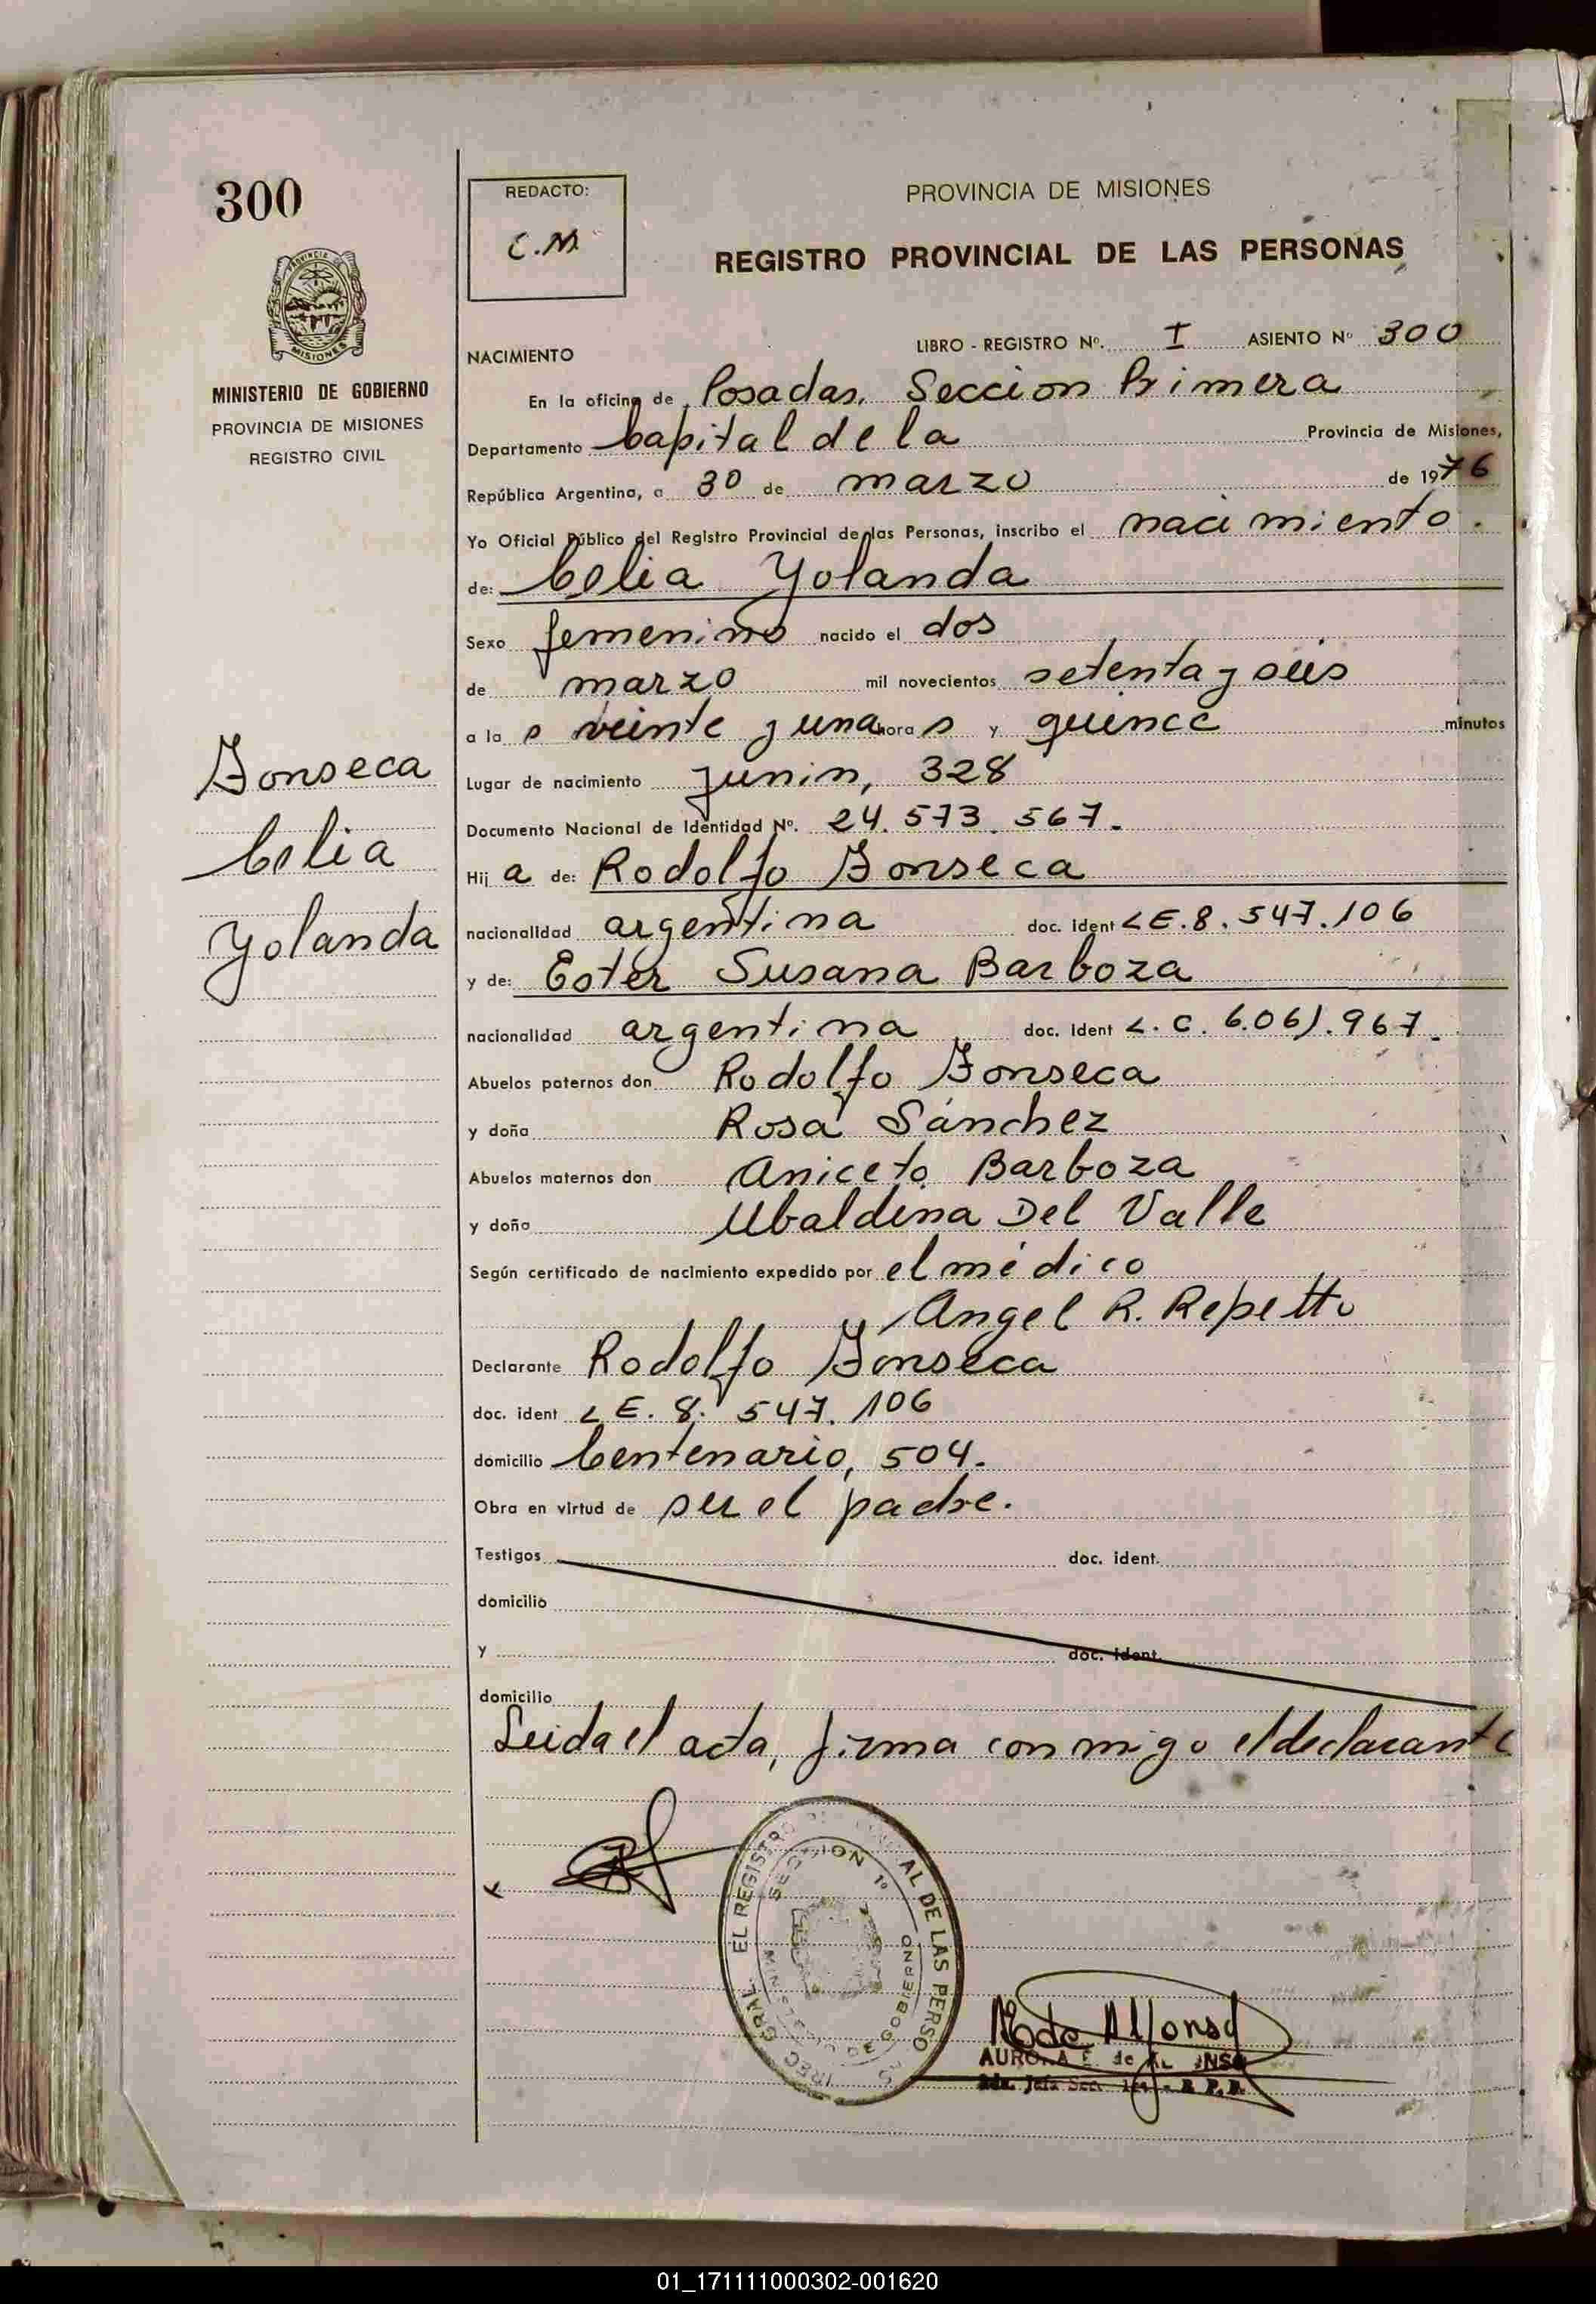 300
PROVINCIA DE
MISIONES
MINISTERIO DE GOBIERNO
PROVINCIA DE MISIONES
REGISTRO CIVIL
Fonseca
Celia
Yolanda
REDACTO:
C.M.
PROVINCIA DE MISIONES
REGISTRO PROVINCIAL DE LAS PERSONAS
NACIMIENTO
LIBRO - REGISTRO Nº. I ASIENTO Nº 300
En la oficina de Posadas, Seccion Primera
Departamento Capital de la Provincia de Misiones,
República Argentina, a 30 de marzo de 1976
Yo Oficial Público del Registro Provincial de las Personas, inscribo el nacimiento.
de: Celia Yolanda
Sexo femenino nacido el dos
de marzo mil novecientos setenta y seis
a la s veinte y una hora s y quince minutos
Lugar de nacimiento Junin, 328
Documento Nacional de Identidad Nº. 24.573.567.
Hij a de: Rodolfo Fonseca
nacionalidad argentina doc. ident LE.8.547.106
y de: Ester Susana Barboza
nacionalidad argentina doc. ident L.C. 6.061.967.
Abuelos paternos don Rodolfo Fonseca
y doña Rosa Sánchez
Abuelos maternos don Aniceto Barboza
y doña Ubaldina Del Valle
Según certificado de nacimiento expedido por el médico
Angel R. Repetto
Declarante Rodolfo Fonseca
doc. ident LE. 8. 547. 106
domicilio Centenario, 504.
Obra en virtud de ser el padre.
Testigos doc. ident.
domicilio
y doc. ident.
domicilio
Leida el acta, firma conmigo el declarante
EL REGISTRO AL DE LAS PERSO
SECCION 1º
GRAL
DE GOBIERNO
de Alfonso
AURORA E. de
Jefa Sec. R. P. P.
01_171111000302-001620